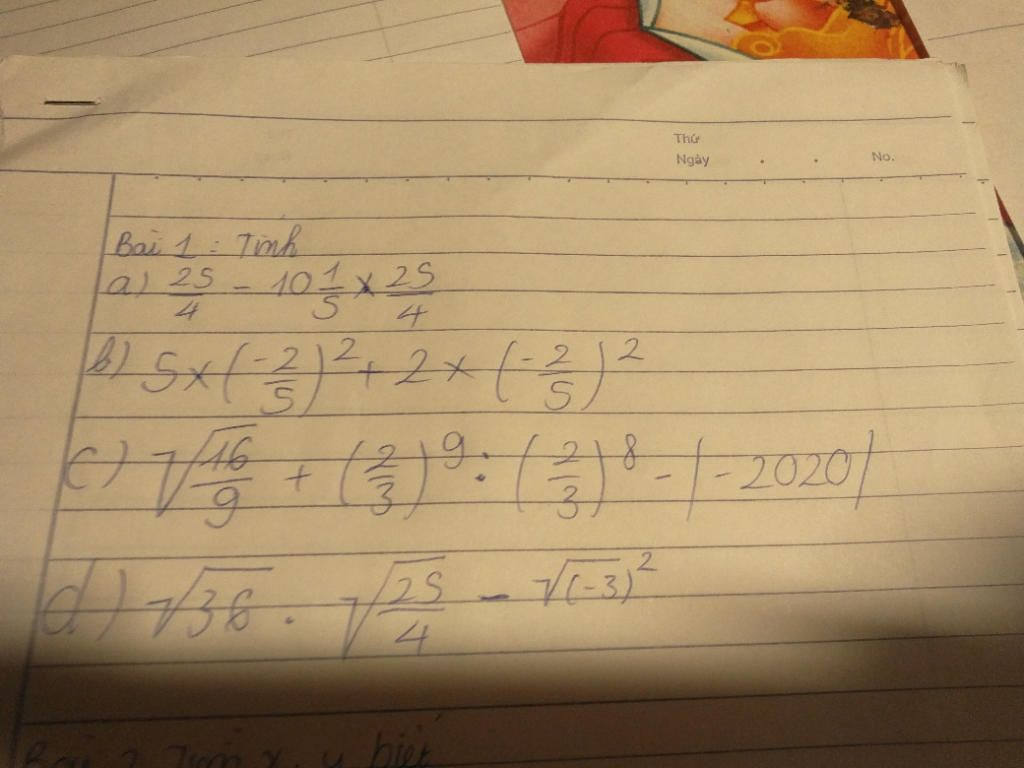 Thứ
Ngày . . No.
Bài 1 : Tính
a) 25/4 - 10 1/5 x 25/4
b) 5 x (-2/5)² + 2 x (-2/5)²
c) √16/9 + (2/3)⁹ : (2/3)⁸ - |-2020|
d) √36 . √25/4 - √(-3)²
Bài 2 Tìm x, y biết